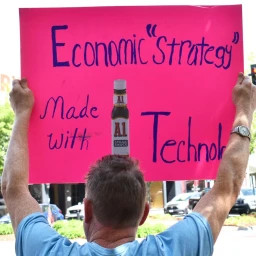 Economic "Strategy"
Made with
A1
A1
Technolo